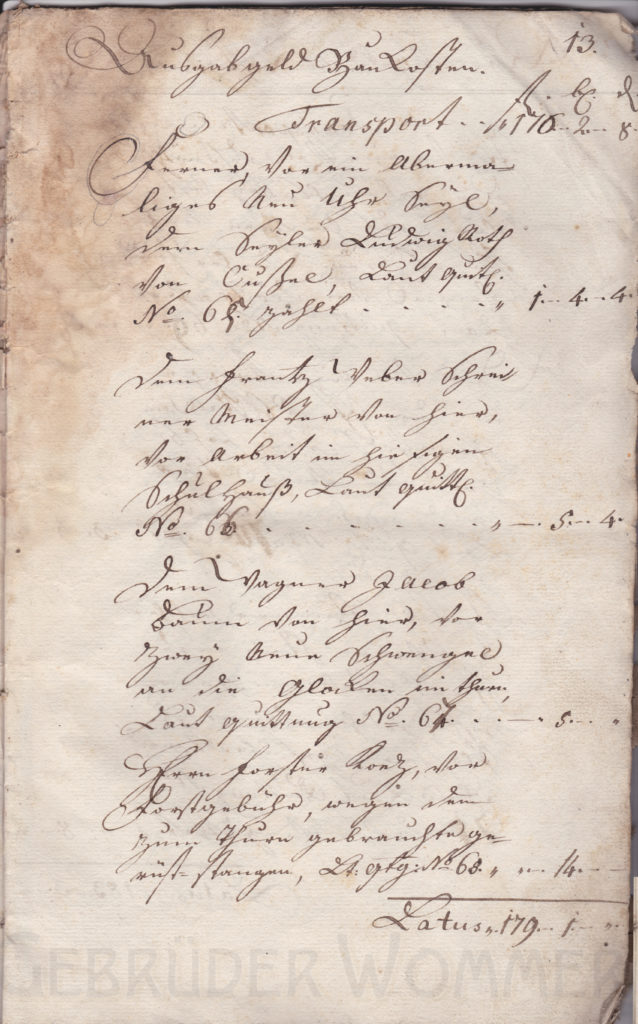 13.
Ausgabgeld Bau Kosten.
fl. bz. d
Transport . . fl 176 – 2 – 8.
Ferner, vor ein Aberma
liges Neu Uhr Seyl,
dem Seyler Ludwig Roth
von Cußel, Laut quit.
No. 65. zahlt . . . . . " 1 – 4 – 4.
dem Frantz Weber Schrei
ner Meister von hier,
vor Arbeit im hiesigen
SchulHauß, Laut quitt.
No. 66 . . . . . . . . " –. 5 – 4.
dem Wagner Jacob
Baum von hier, vor
zwey Neue Schwengel
an die Glocken im thurn,
Laut quittung No. 67. . . –. 5. – "
Herrn Forster, vor
Forstgebühr, wegen dem
zum Thurn gebrauchte ge-
rüst-stangen, Lt: qtg: No 68. " ". 14. –
Latus " 179 – 1 – "
GEBRÜDER WOMMER